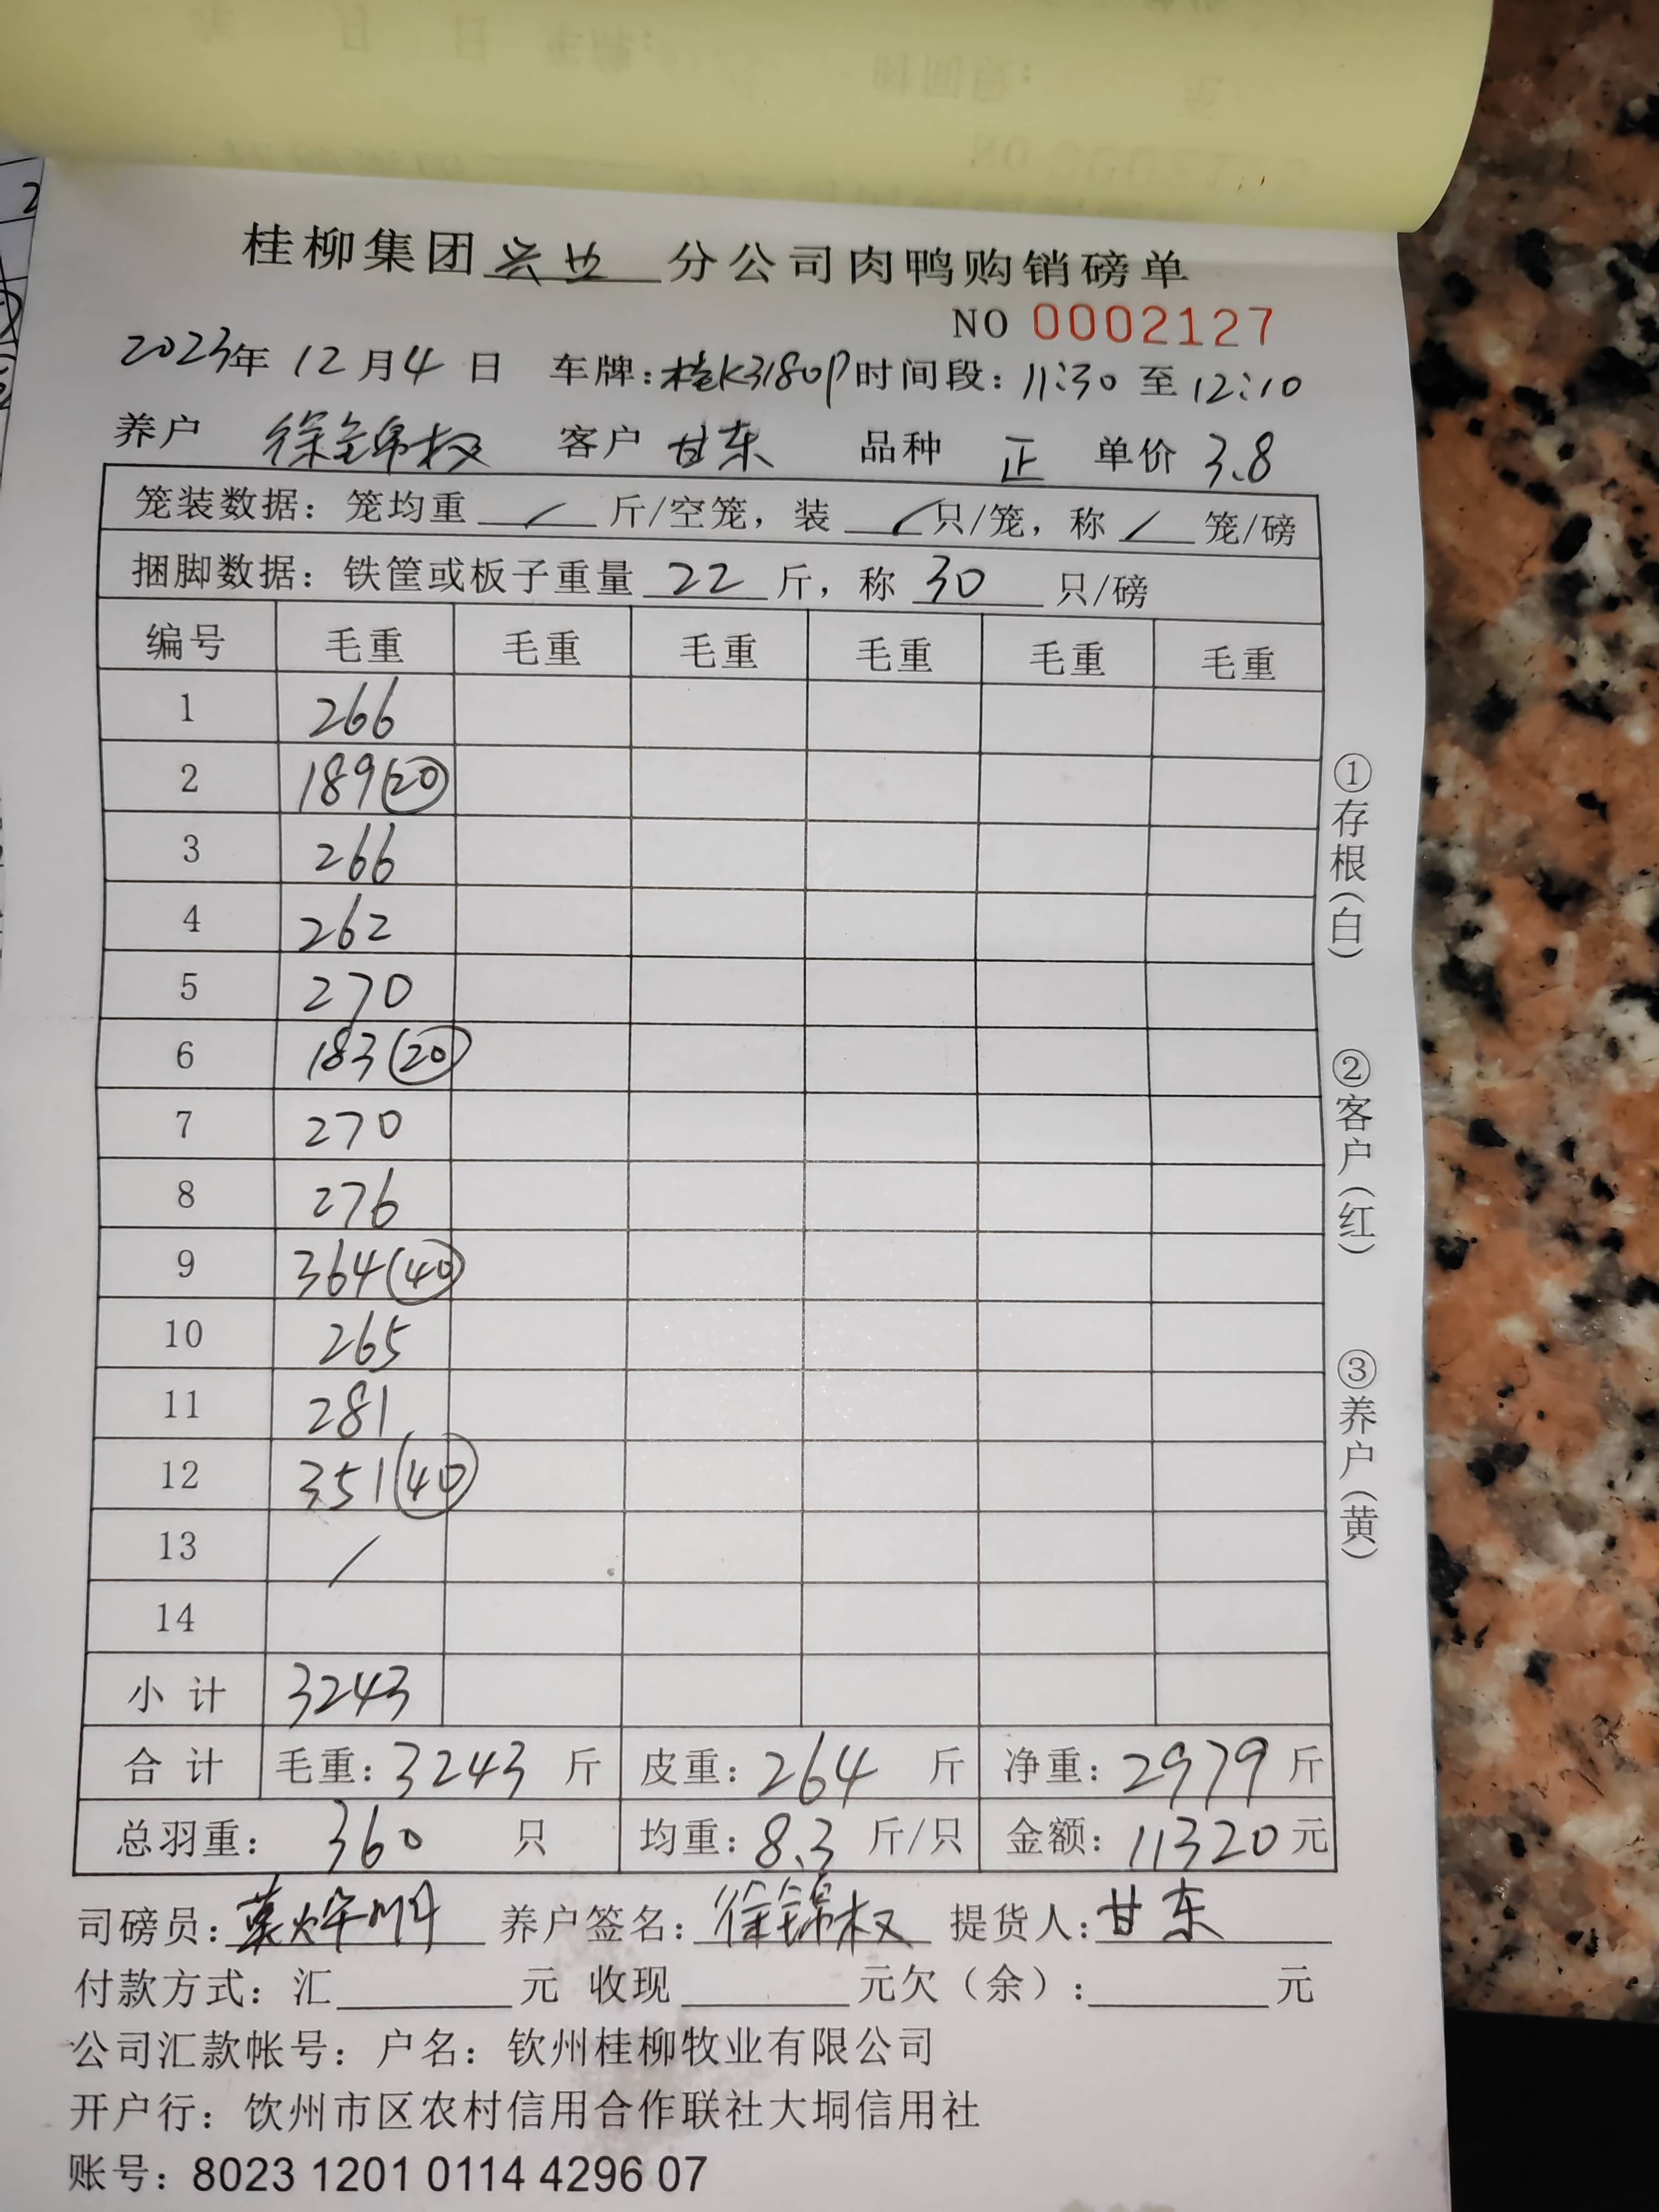 桂柳集团兴业分公司肉鸭购销磅单
NO 0002127
2023年 12月4日 车牌:桂K3180P 时间段:11:30至12:10
养户 徐锦权 客户 甘东 品种 正 单价 3.8
笼装数据:笼均重 / 斤/空笼,装 / 只/笼,称 / 笼/磅
捆脚数据:铁筐或板子重量 22 斤,称 30 只/磅
编号 毛重 毛重 毛重 毛重 毛重 毛重
1 266
2 189(20)
3 266
4 262
5 270
6 183(20)
7 270
8 276
9 364(40)
10 265
11 281
12 351(40)
13 /
14
小计 3243
合计 毛重:3243 斤 皮重:264 斤 净重:2979 斤
总羽重:360 只 均重:8.3 斤/只 金额:11320元
①存根(白)
②客户(红)
③养户(黄)
司磅员: 养户签名:徐锦权 提货人:甘东
付款方式:汇 元 收现 元欠(余): 元
公司汇款帐号:户名:钦州桂柳牧业有限公司
开户行:饮州市区农村信用合作联社大垌信用社
账号:8023 1201 0114 4296 07